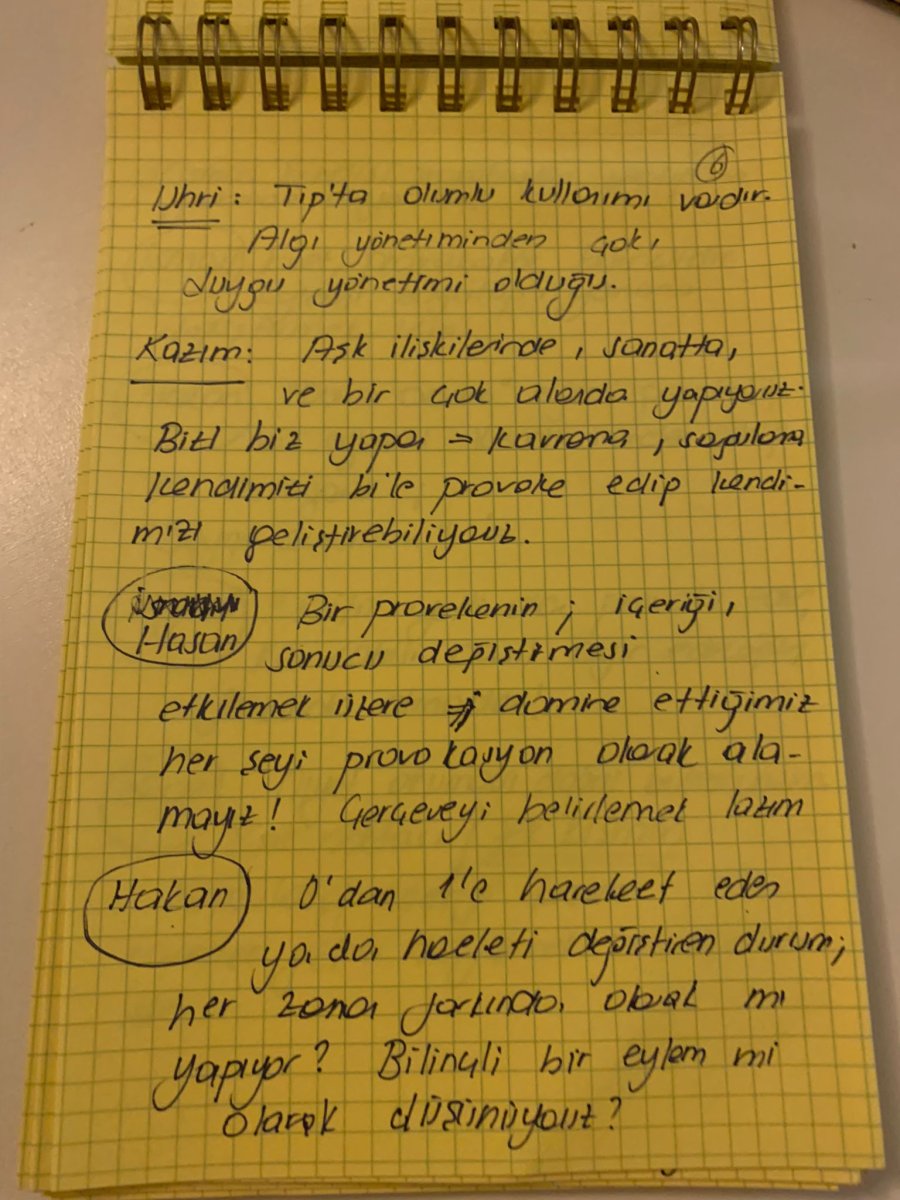 6
Uhri: Tıp'ta olumlu kullanımı vardır.
Algı yönetiminden çok,
duygu yönetimi olduğu.
Kazım: Aşk ilişkilerinde, sanatta,
ve bir çok alanda yapıyoruz.
Bizi biz yapan → kavrama, sorgulama
kendimizi bile provoke edip kendi-
mizi geliştirebiliyoruz.
Hasan Bir provekenin; içeriği,
sonucu değiştirmesi
etkilemek üzere domine ettiğimiz
her şeyi provokasyon olarak ala-
mayız! Çerçeveyi belirlemek lazım
Hakan 0'dan 1'e hareket eden
ya da hareketi değiştiren durum;
her zaman farkında olarak mı
yapıyor? Bilinçli bir eylem mi
olarak düşünüyoruz?